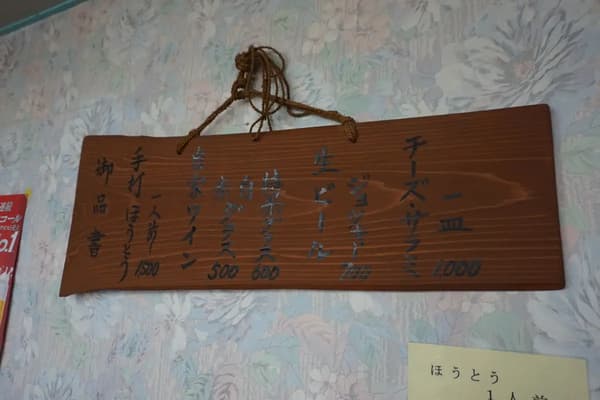 御品書
手打ほうとう
一人前 1500
自家ワイン
赤グラス 500
白
グラス 600
生ビール
ジョッキ 700
チーズ・サラミ
一皿 1000
コール
o.1
ほうとう
1人前